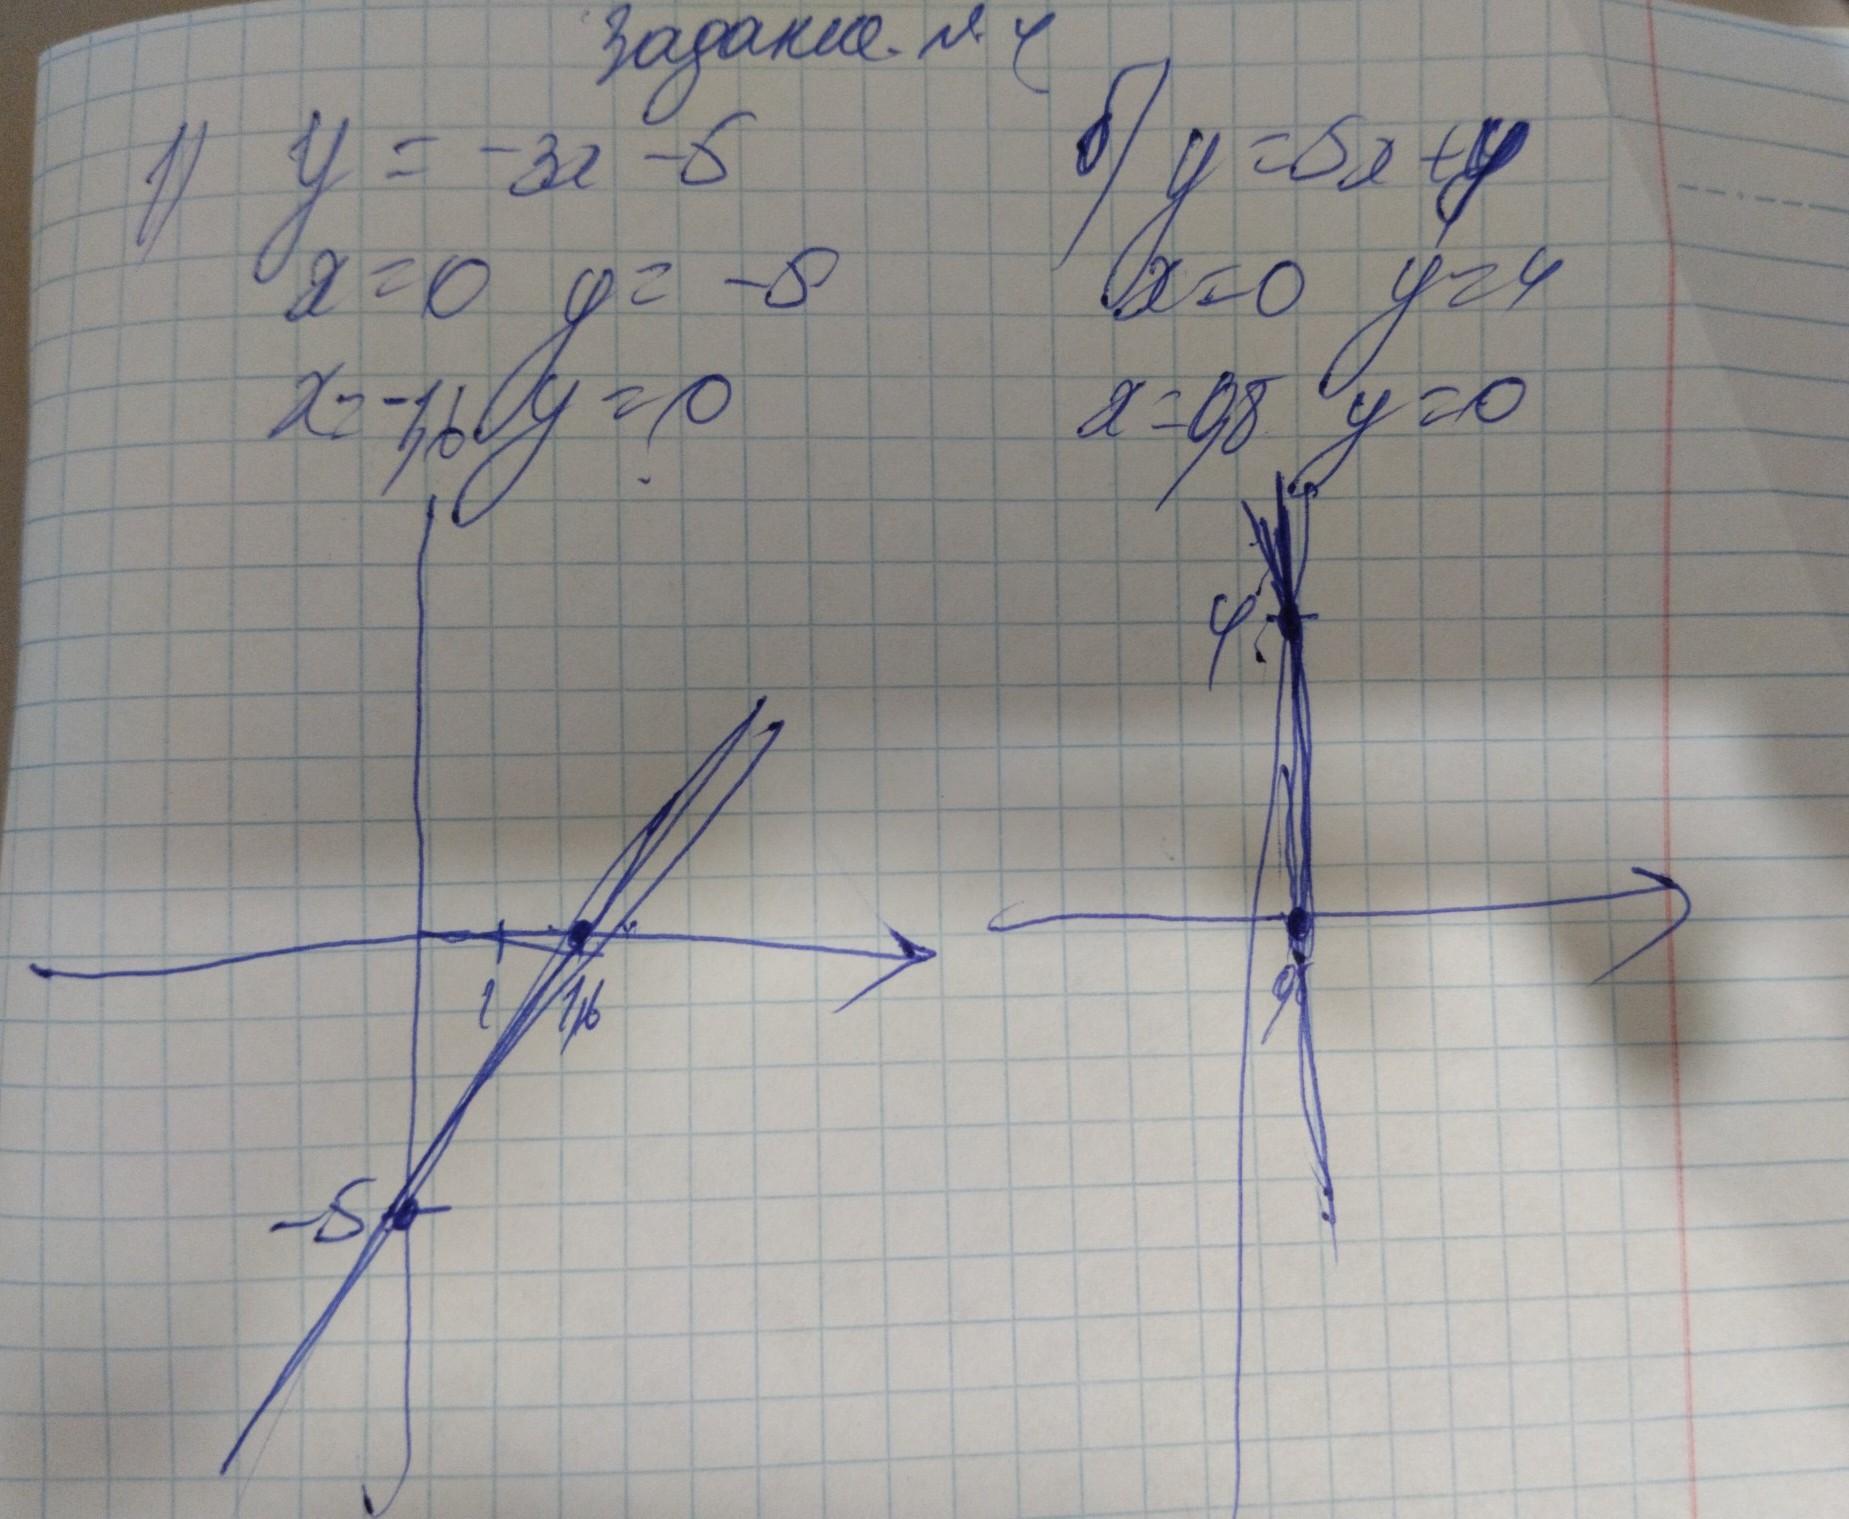 Задание №4
1) y = -3x -5
x=0 y= -5
x=-1,6 y=0
б) y=5x+4
x=0 y=4
x=0,8 y=0
4
1 1,6
0,8
-5